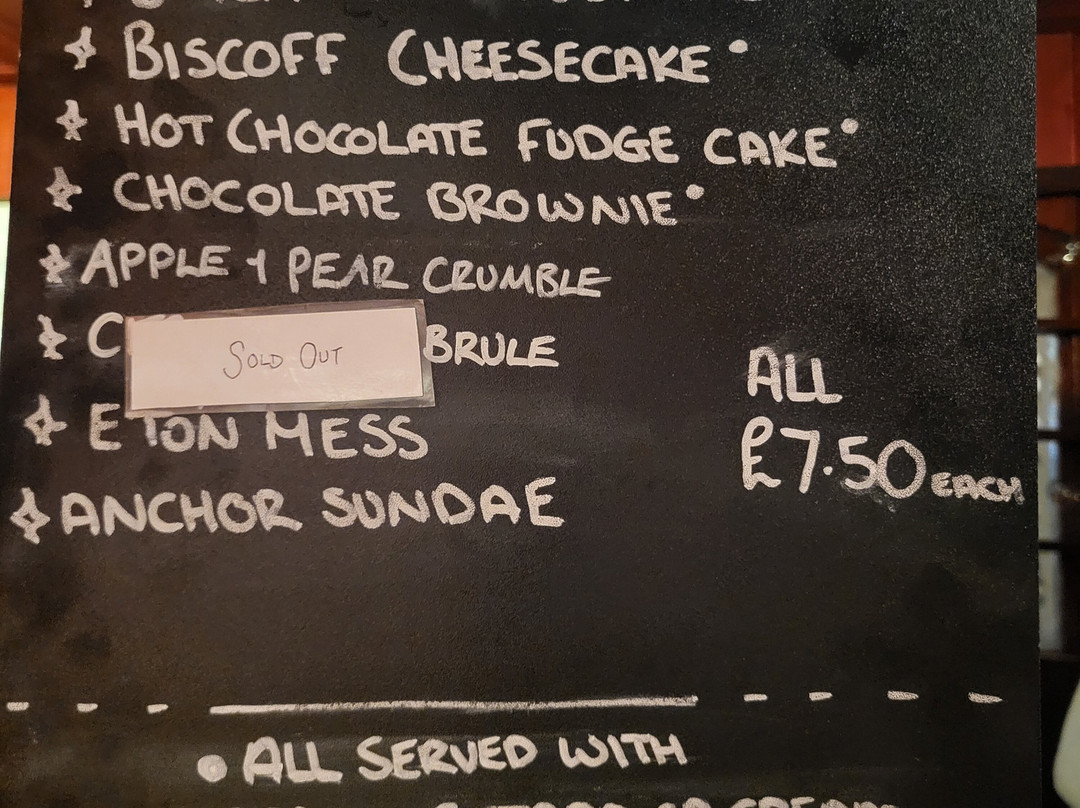 BISCOFF CHEESECAKE •
HOT CHOCOLATE FUDGE CAKE •
CHOCOLATE BROWNIE •
APPLE & PEAR CRUMBLE
SOLD OUT
BRULE
ETON MESS
ANCHOR SUNDAE
ALL
£7.50 EACH
• ALL SERVED WITH